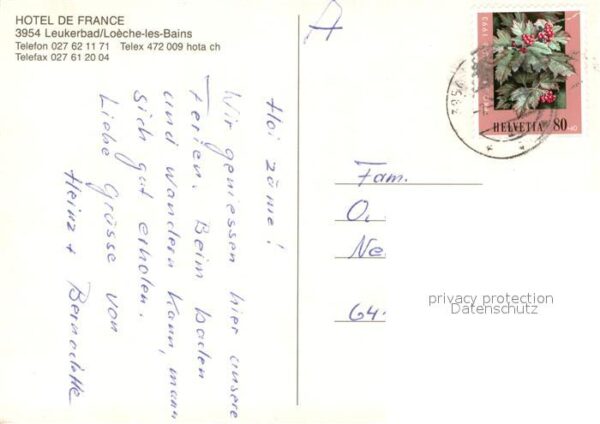 HOTEL DE FRANCE
3954 Leukerbad/Loèche-les-Bains
Telefon 027 62 11 71 Telex 472 009 hota ch
Telefax 027 61 20 04
Hoi zäme!
Wir geniessen hier unsere
Ferien. Beim baden
und wandern kann, mann
sich gut erholen.
Liebe Grüsse von
Heinz + Bernadette
A
HELVETIA 80
Fam.
O.
Ne
64
privacy protection
Datenschutz